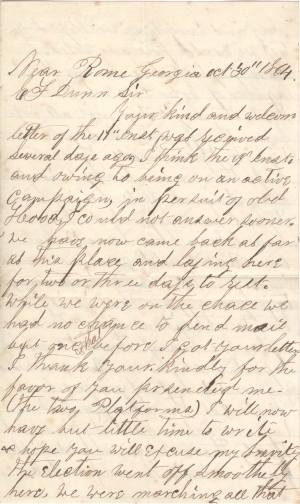 Near Rome Georgia oct 30th 1864
Dunn Sir
Your kind and welcom
letter of the 11th inst was received
several days ago, I think the inst
and owing to being on an active
Campaign, in persuit of old
Hood, I could not answer sooner.
We have now come back as far
as this place and laying here
for two or three days to rest.
While we were on the chace we
had no chance to send mail
but once before I got your letter
I thank you kindly for the
favor of you presenting me
(the two Platforms) I will now
have but little time to write
& hope you will excuse my brevity
The election went off smoothely
here, we were marching all that